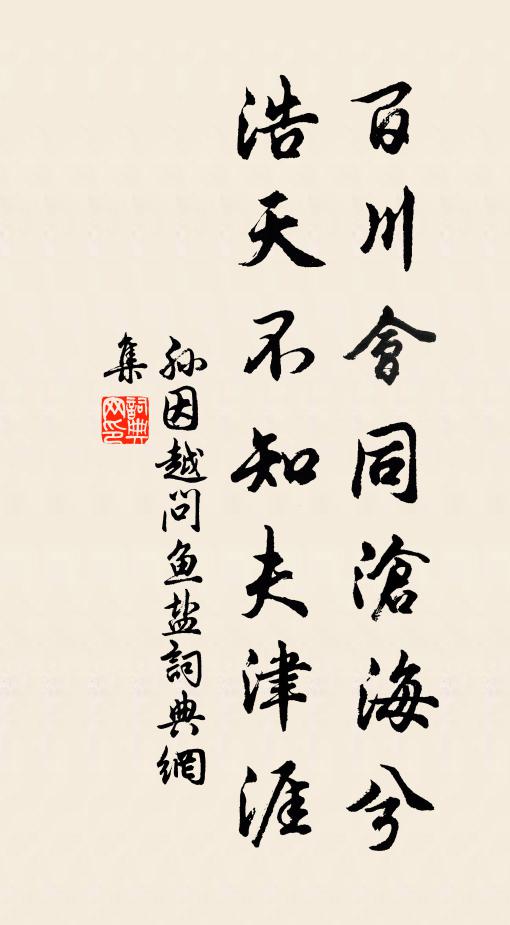 百川會同滄海兮
浩天不知夫津涯
孙因越问鱼盐詞典網
集
詞典网印